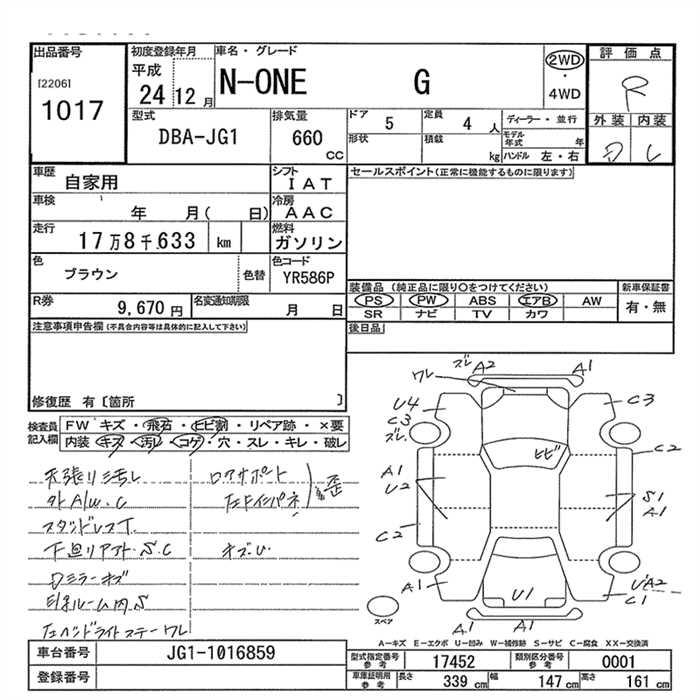 出品番号
[2206]
1017
初度登録年月
平成
24 12 月
車名・グレード
N-ONE G
2WD
・
4WD
評価点
R
外装 内装
D し
型式
DBA-JG1
排気量
660
cc
ドア
5
定員
4 人
形状
積載
kg
ディーラー・並行
モデル年式 年
ハンドル 左・右
車歴
自家用
シフト
IAT
車検
年 月( 日)
冷房
AAC
走行
17万8千633 km
燃料
ガソリン
色
ブラウン
色替
色コード
YR586P
R券
9,670 円
名変通知期限
月 日
セールスポイント(正常に機能するものに限ります)
装備品(純正品に限り○をつけてください)
PS PW ABS エアB AW
SR ナビ TV カワ
新車保証書
有・無
後日品
注意事項申告欄(不具合内容等は具体的に記入して下さい)
修復歴 有〔箇所 〕
検査員記入欄
FW キズ・飛石・ヒビ割・リペア跡・×要
内装 キズ・汚レ・コゲ・穴・スレ・キレ・破レ
天張り汚レ
外A/w.C
スタッドレスT
下廻りアフト.S.C
Dミラーキズ
ロアサポート
左Fインパネ
歪
キズ.U
左ヘッドライトステーワレ
ズレ A2
ワレ
A1
U4
C3
ズレ
C3
C2
ヒビ
A1
U2
S1
A1
C2
A1
U1
U'A2
C1
A1 A1
スペア
A－キズ E－エクボ U－凹み W－補修跡 S－サビ C－腐食 XX－交換済
車台番号
JG1-1016859
登録番号
型式指定番号 参考
17452
類別区分番号 参考
0001
車庫証明用 参考
長さ 339 cm
幅 147 cm
高さ 161 cm